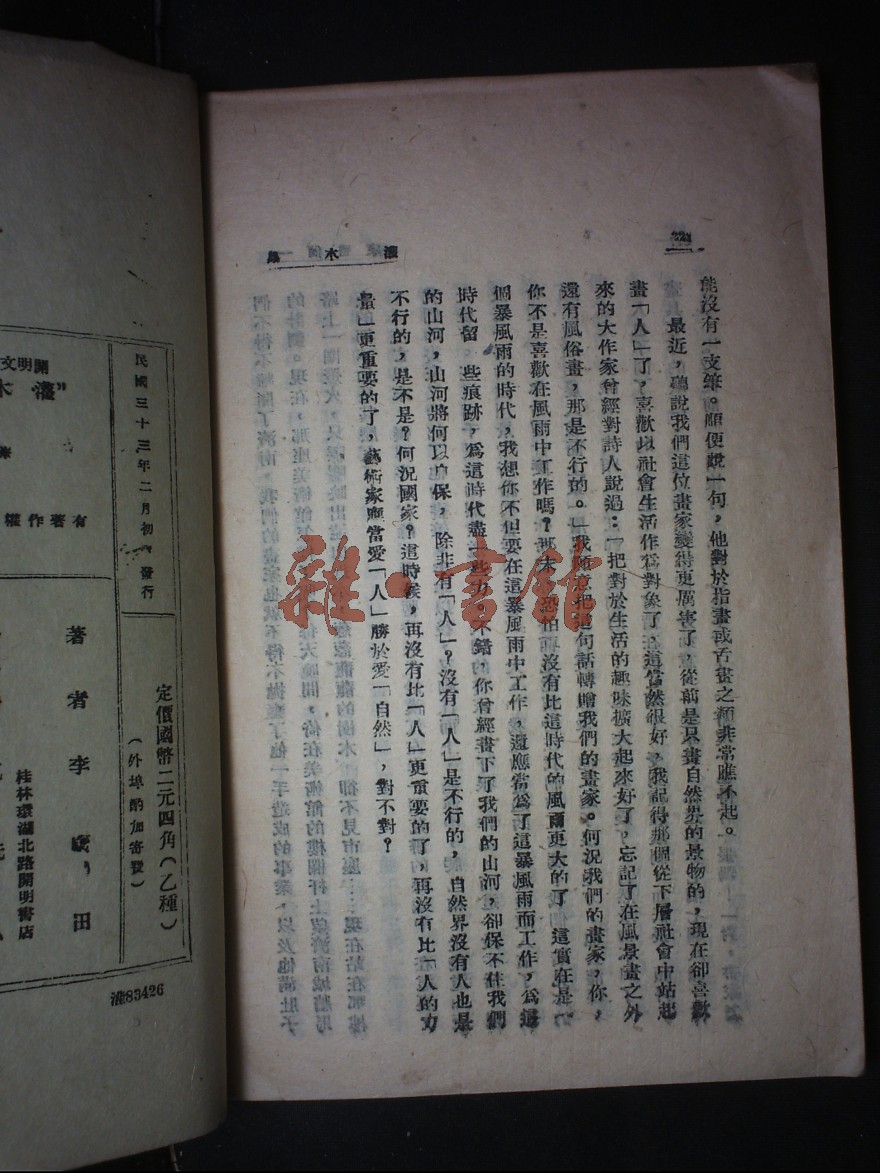 灌木
能沒有一支筆。順便說一句，他對於指畫或舌畫之類非常瞧不起。
最近，聽說我們這位畫家變得更厲害了，從前是只畫自然界的景物的，現在卻喜歡
畫「人」了，喜歡以社會生活作為對象了，這當然很好，我記得那個從下層社會中站起
來的大作家曾經對詩人說過：「把對於生活的趣味擴大起來好了，忘記了在風景畫之外
還有風俗畫，那是不行的。」我願意把這句話轉贈我們的畫家。何況我們的畫家，你，
你不是喜歡在風雨中工作嗎？那末，恐怕再沒有比這時代的風雨更大的了，這實在是一
個暴風雨的時代，我想你不但要在這暴風雨中工作，還應當為了這暴風雨而工作，為這
時代留一些痕跡，為這時代盡一些力，不錯，你曾經畫下了我們的山河，卻保不住我們
的山河，山河將何以自保，除非有「人」？沒有「人」是不行的，自然界沒有人也是
不行的，是不是？何況國家？這時候，再沒有比「人」更重要的了，再沒有比「人的力
量」更重要的了，藝術家應當愛「人」勝於愛「自然」，對不對？
雜書館
開明文
"灌木
有著作權
民國三十三年二月初發行
定價國幣二元四角（乙種）
（外埠酌加寄費）
著者李廣田
桂林環湖北路開明書店
灌83426